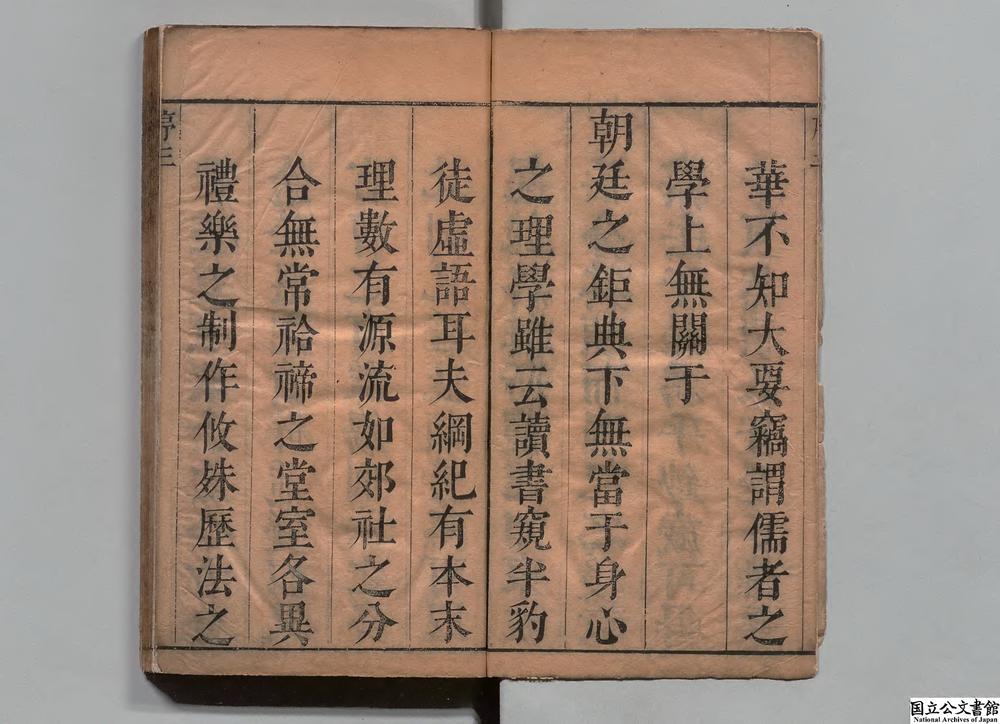 華不知大要竊謂儒者之
學上無關于
朝廷之鉅典下無當于身心
之理學雖云讀書窺半豹
徒虛語耳夫綱紀有本末
理數有源流如郊社之分
合無常祫禘之堂室各異
禮樂之制作攸殊歷法之
序三
国立公文書館
National Archives of Japan